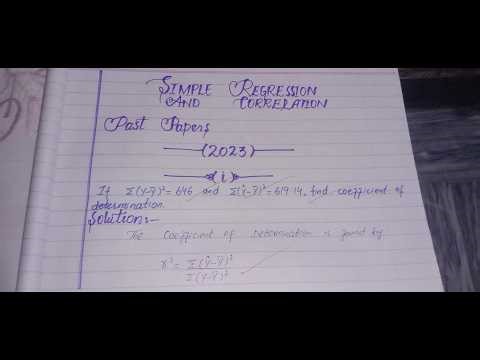 SIMPLE REGRESSION
AND CORRELATION
Past Papers
(2023)
(i)
If Σ(Y-Ȳ)² = 646 and Σ(Ŷ-Ȳ)² = 619.14, find coefficient of
determination.
Solution:-
The Coefficient of Determination is found by
r² = Σ(Ŷ-Ȳ)²
Σ(Y-Ȳ)²